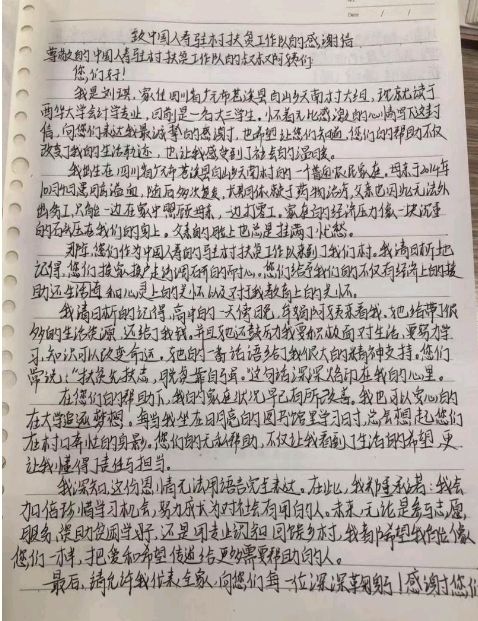 Date
致中国人寿驻村扶贫工作队的感谢信
尊敬的中国人寿驻村扶贫工作队的叔叔阿姨们
您们好!
我是刘琪,家住四川省广元市苍溪县白山乡天南村大组,现就读于
西华大学会计学专业,目前是一名大三学生。怀着无比感激的心情写下这封
信,向您们表达我最诚挚的感谢,也希望让您们知道,您们的帮助不仅
改变了我的生活轨迹,也让我感受到了社会的温暖。
我出生在四川省广元市苍溪县白山乡天南村的一个普通农民家庭。母亲于2014年
10月确患脑溢血,随后多次复发,长期依赖于药物治疗,父亲也因此无法外
出务工,只能一边在家中照顾母亲,一边打零工。家庭的经济压力像一块沉重
的石头压在我们的身上。父亲的脸上也总是挂满了忧愁。
那时,您们作为中国人寿的驻村扶贫工作队来到了我们村。我清晰地
记得,您们挨家挨户走访调研的耐心。您们给予我们的不仅有经济上的援
助还生活和心灵上的关怀以及对于我教育上的关怀。
我清晰的记得,高中的一天傍晚,年猫阿姨来看我,她给带了很
多的生活资源,还给了我钱。并且她还鼓励我要积极面对生活,要努力学
习,知识可以改变命运。她的一番话语给了我很大的精神支持。您们
常说:“扶贫先扶志,脱贫靠自强。”这句话深深烙印在我的心里。
在您们的帮助下,我的家庭状况早已有所改善。我也可以安心的
在大学追逐梦想。每当我坐在明亮的图书馆里学习时,总会想起您们
在村口奔忙的身影。您们的无私帮助,不仅让我看到了生活的希望,更
让我懂得了责任与担当。
我深知,这份恩情无法用语言完全表达。在此,我郑重承诺:我会
加倍珍惜学习机会,努力成长为对社会有用的人。未来,无论是参与志愿
服务,资助贫困学子,还是用专业知识回馈乡村,我都希望我能像
您们一样,把爱和希望传递给更多需要帮助的人。
最后,请允许我代表全家,向您们每一位深深鞠躬!感谢您们